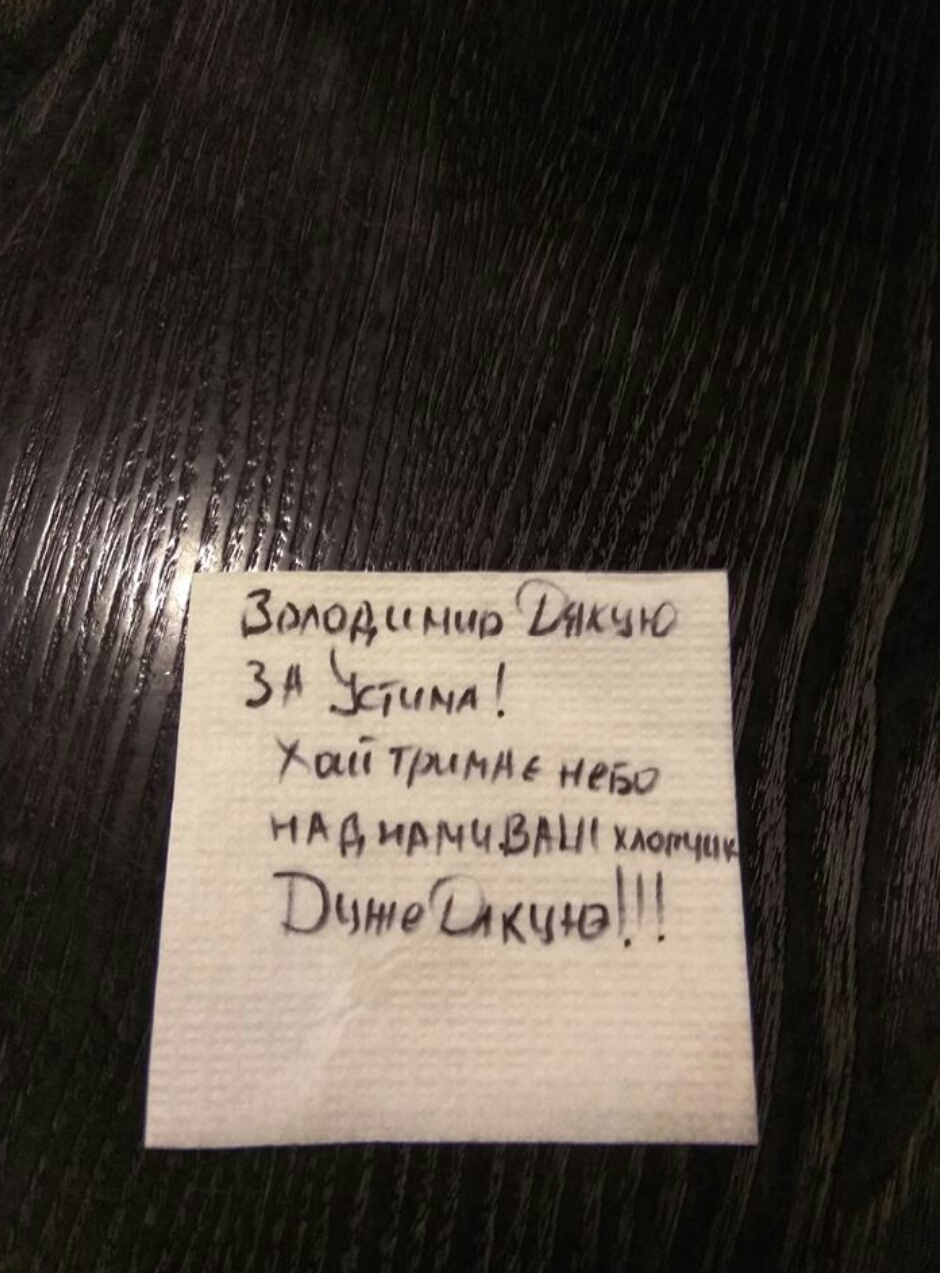 Володимир Дякую
ЗА Устима!
Хай тримає небо
НАД нами ВАШ хлопчик
Дуже Дякую!!!